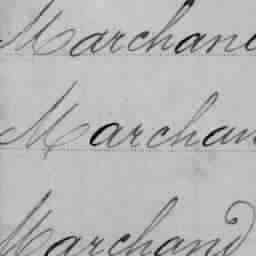 Marchand
Marchan
Marchand